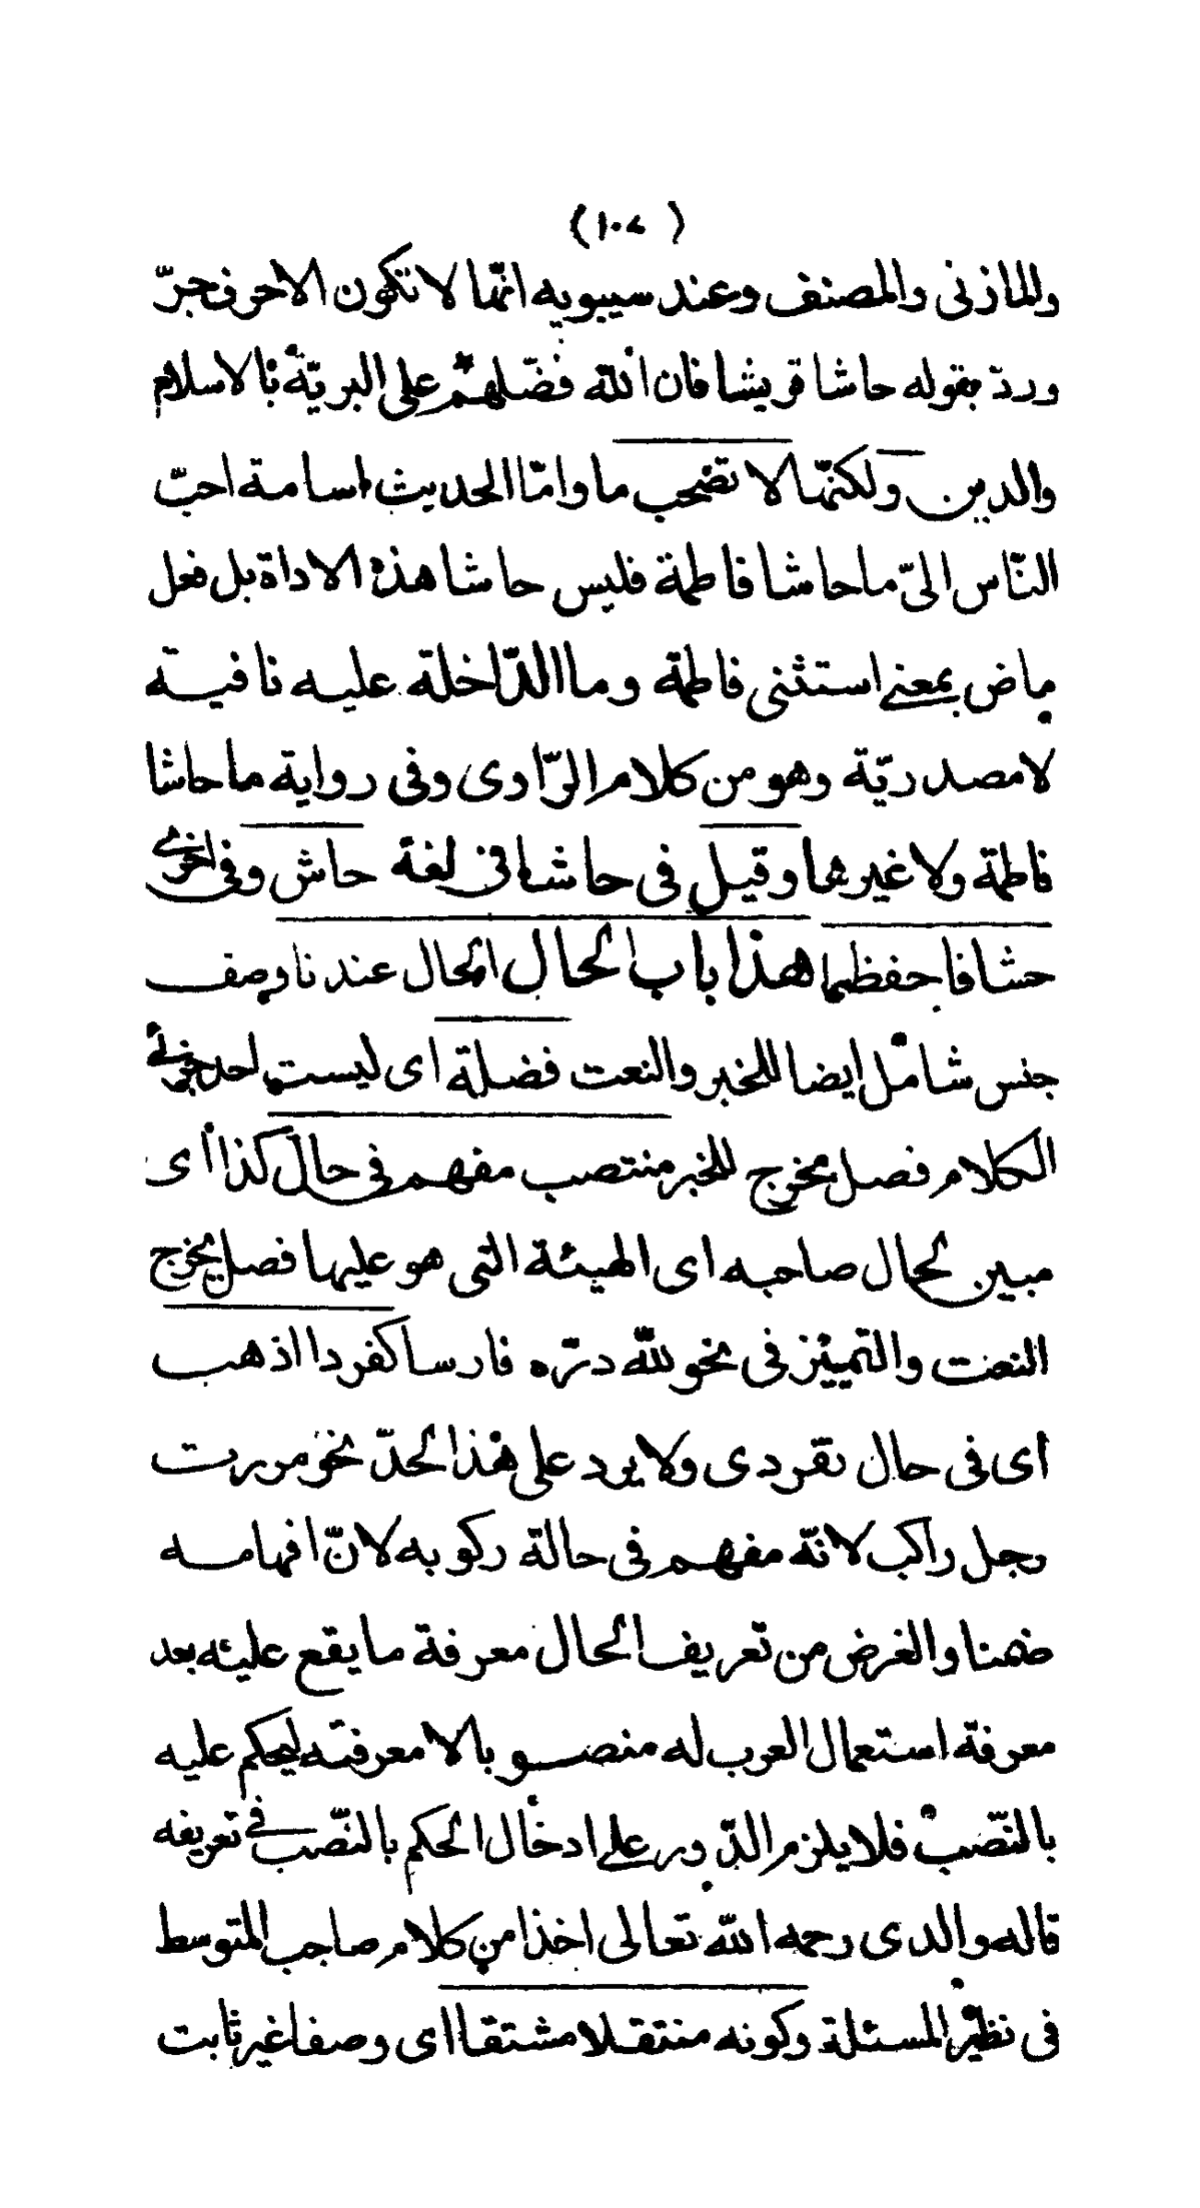 (١٠٧)
والمازنى والمصنف وعند سيبويه انّها لا تكون الا حرف جرّ
وردّ بقوله حاشا قريشا فان الله فضّلهم على البريّة بالاسلام
والدين ولكنّها لا تصحب ما وامّا الحديث اسامة احبّ
النّاس الىّ ما حاشا فاطمة فليس حاشا هذه الاداة بل فعل
ماض بمعنى استثنى فاطمة وما الدّاخلة عليه نافية
لا مصدريّة وهو من كلام الرّاوى وفى رواية ما حاشا
فاطمة ولا غيرها وقيل فى حاشا فى لغة حاش وفى اخرى
حشا فاحفظهما هذا باب الحال الحال عندنا وصف
جنس شامل ايضا للخبر والنعت فضلة اى ليست احد جزئى
الكلام فصل مخرج للخبر منتصب مفهم فى حال كذا اى
مبين لحال صاحبه اى الهيئة التى هو عليها فصل يخرج
النعت والتمييز فى نحو لله درّه فارسا كفردا اذهب
اى فى حال تفردى ولا يرد على هذا الحدّ نحو مررت
برجل راكب لانّه مفهم فى حالة ركوبه لانّ افهامه
ضمنا والغرض من تعريف الحال معرفة ما يقع عليه بعد
معرفة استعمال العرب له منصوبا لا معرفته ليحكم عليه
بالنّصب فلا يلزم الدّور على ادخال الحكم بالنّصب فى تعريفه
قاله والدى رحمه الله تعالى اخذا من كلام صاحب المتوسط
فى نظير المسئلة وكونه منتقلا مشتقا اى وصفا غير ثابت